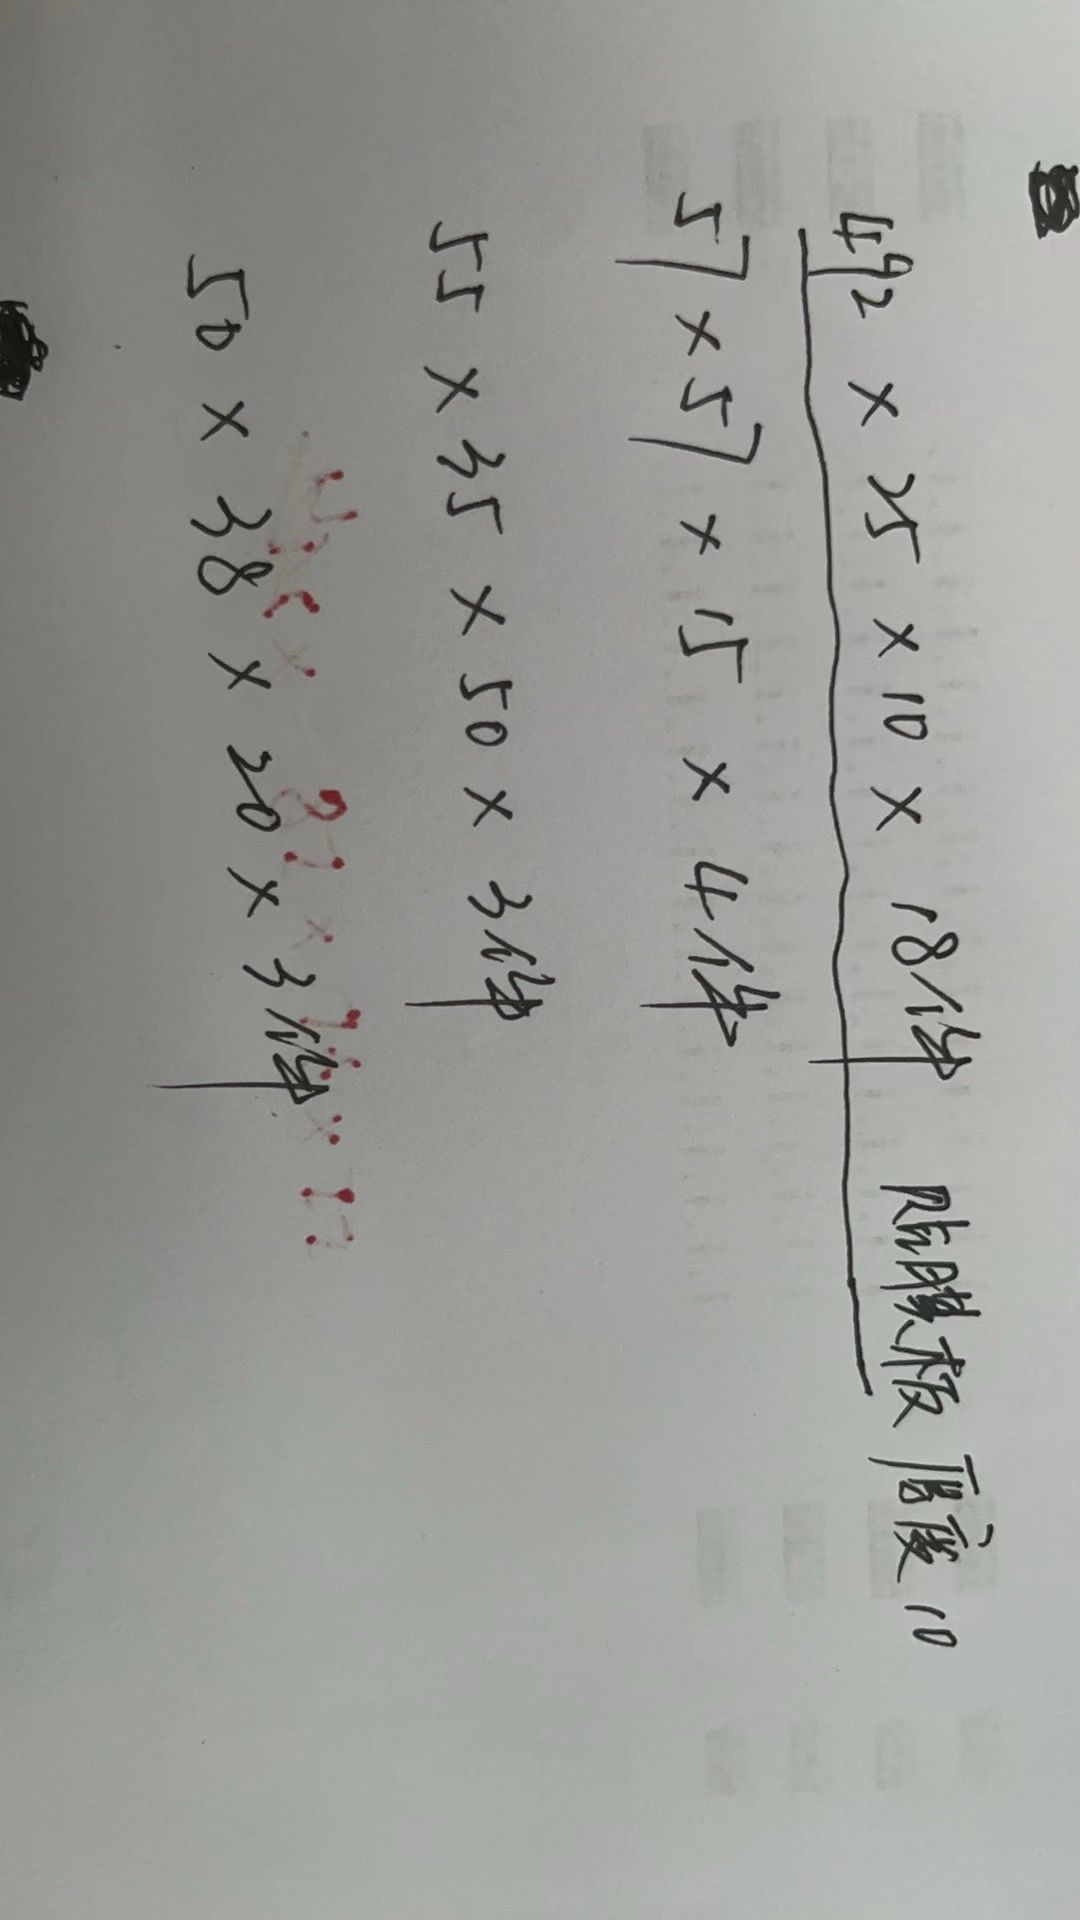 492 × 25 × 10 × 18件 贴膜板 厚度10
57 × 57 × 15 × 4件
55 × 35 × 50 × 3件
50 × 38 × 20 × 3件